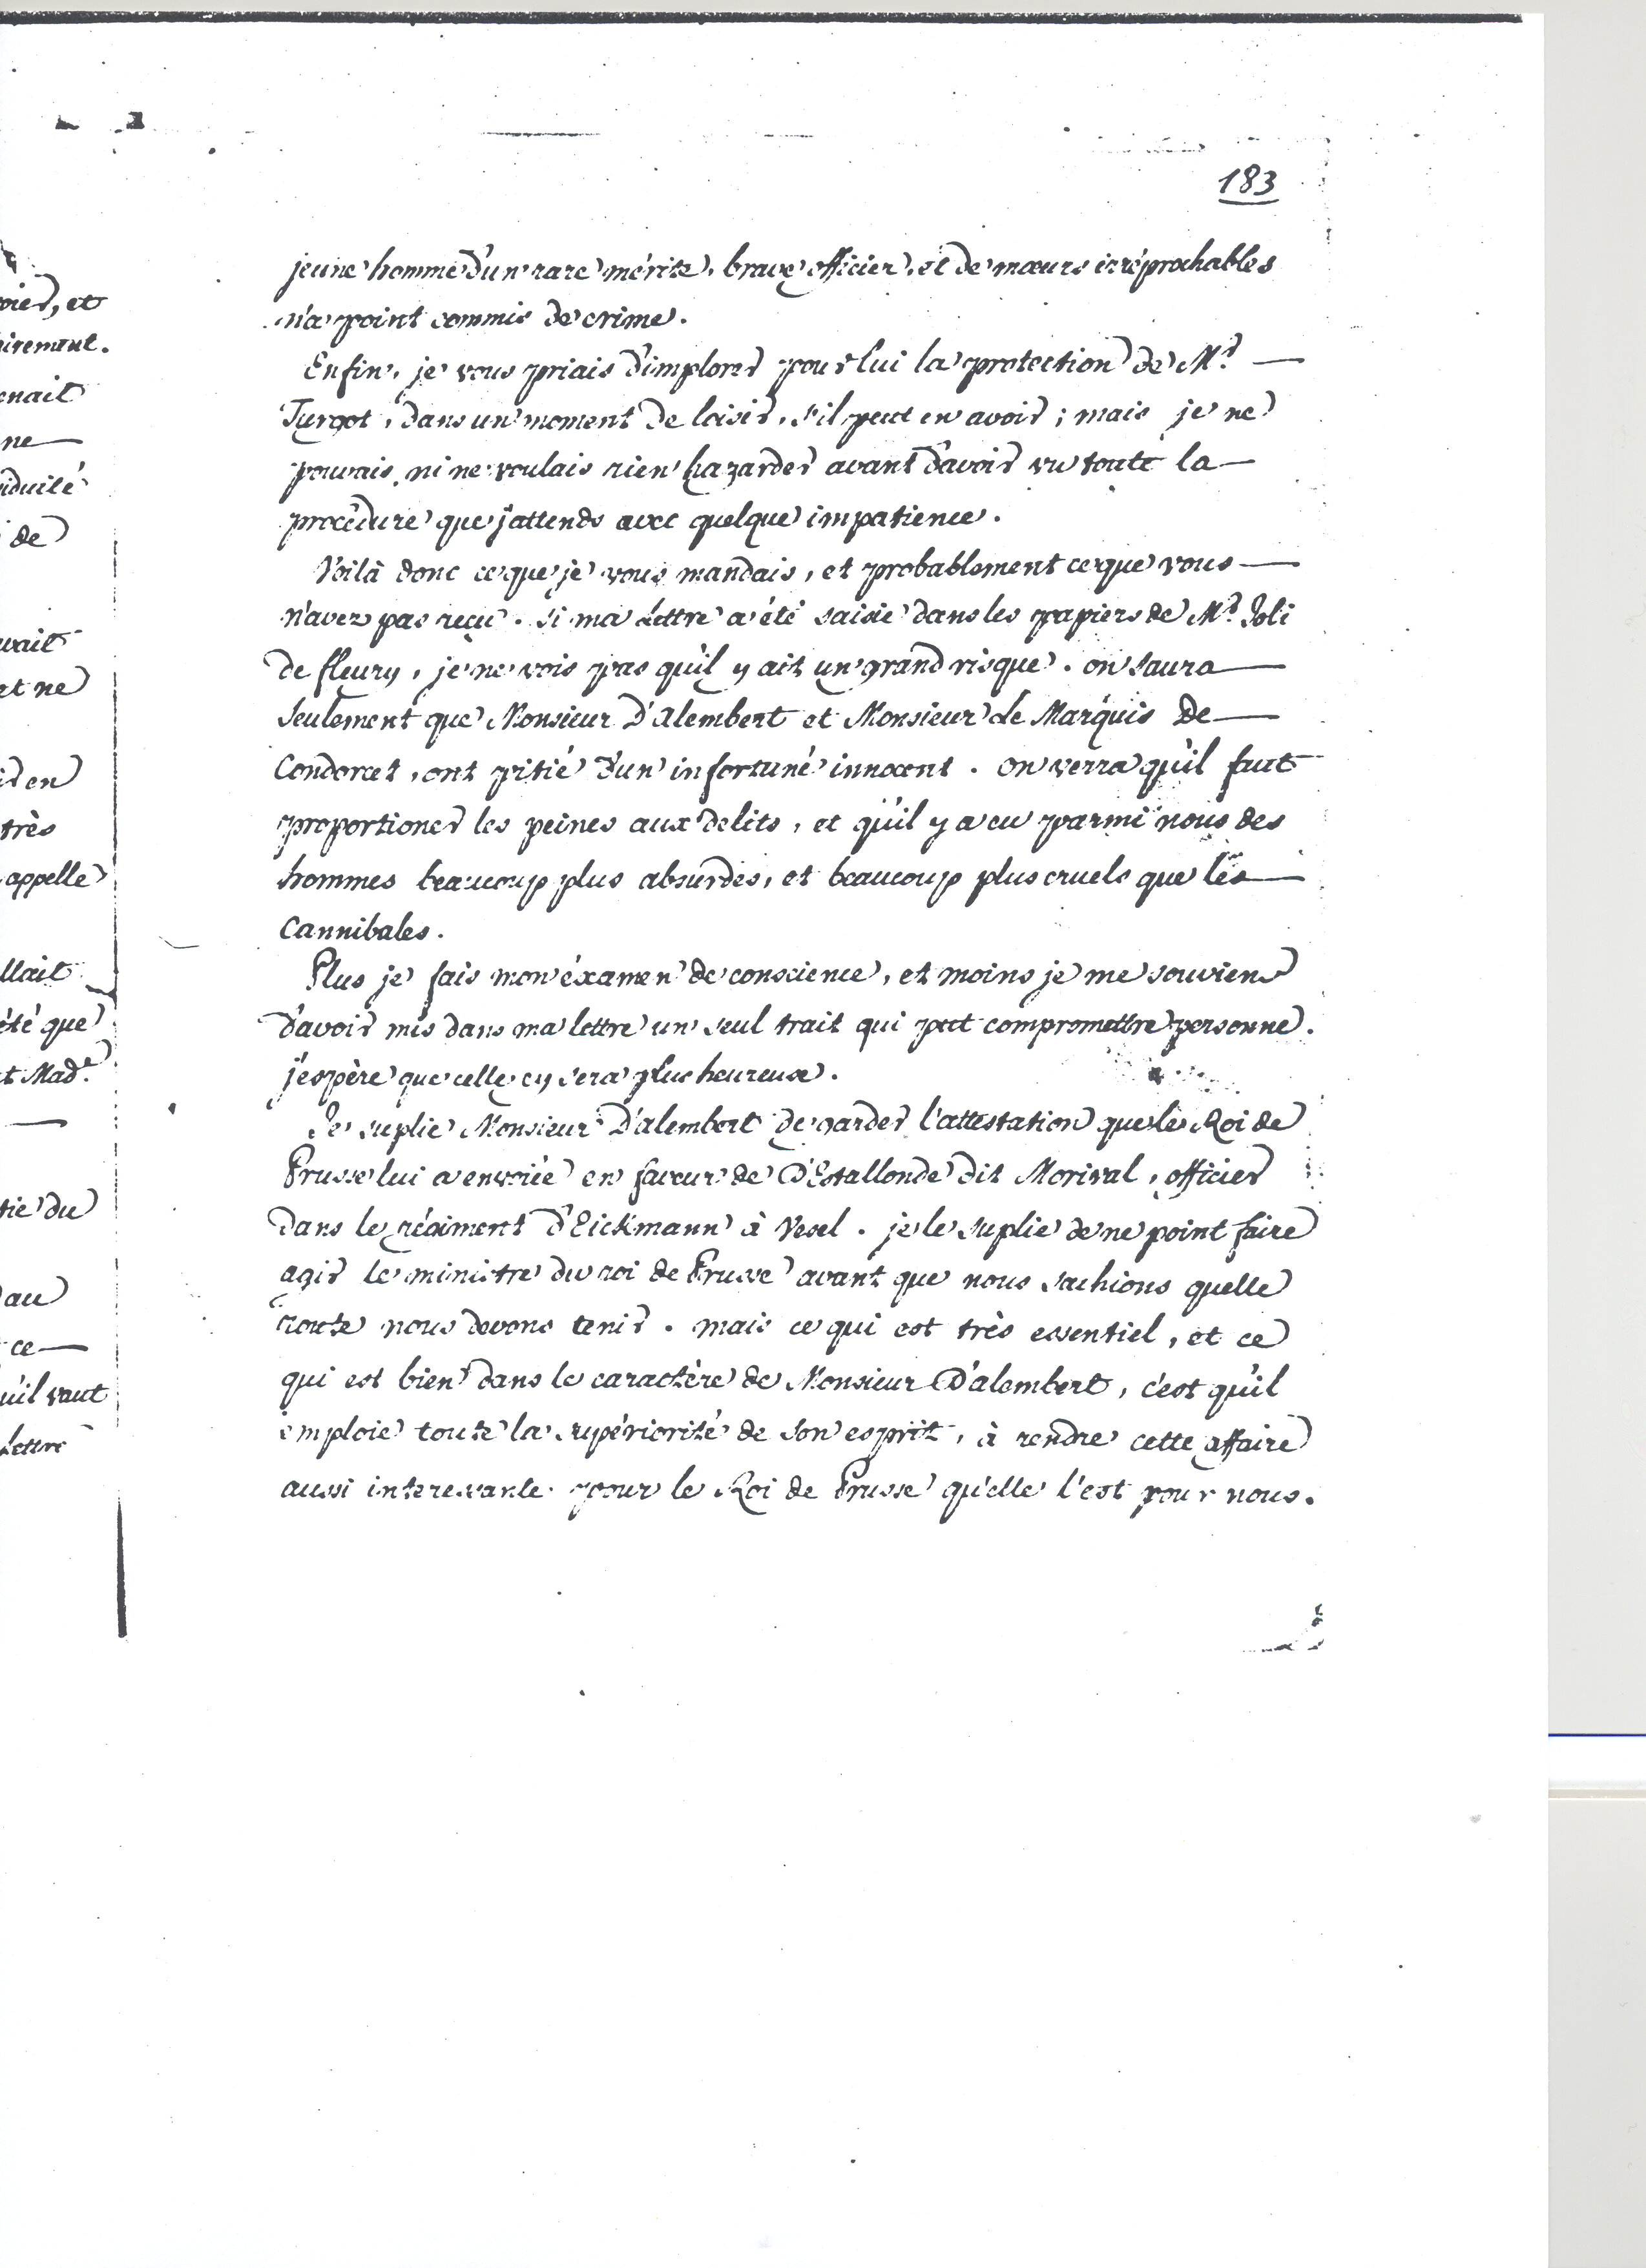 183
jeune homme d'un rare mérite, brave officier, et de mœurs irréprochables
n'a point commis de crime.
Enfin, je vous priais d'implorer pour lui la protection de Mr. —
Turgot, dans un moment de loisir, s'il peut en avoir ; mais je ne
pouvais, ni ne voulais rien hazarder avant d'avoir vu toute la —
procédure que j'attends avec quelque impatience.
Voilà donc ce que je vous mandais, et probablement ce que vous —
n'avez pas reçu. Si ma Lettre a été saisie dans les papiers de Mr. Joli
de fleury, je ne vois pas qu'il y ait un grand risque. on saura —
seulement que Monsieur D'alembert et Monsieur Le Marquis De —
Condorcet, ont pitié d'un infortuné innocent. on verra qu'il faut
proportioner les peines aux delits, et qu'il y a eu parmi nous des
hommes beaucoup plus absurdes, et beaucoup plus cruels que les —
Cannibales.
Plus je fais mon éxamen de conscience, et moins je me souviens
d'avoir mis dans ma lettre un seul trait qui peut compromettre personne.
j'espère que celle cy sera plus heureuse.
Je suplie Monsieur D'alembert de garder l'attestation que le Roi de
Prusse lui a envoiée en faveur de D'Estallonde dit Morival, officier
dans le régiment d'Eickmann à Vesel. je le suplie de ne point faire
agir le ministre du roi de Prusse avant que nous sachions quelle
route nous devons tenir. mais ce qui est très essentiel, et ce
qui est bien dans le caractère de Monsieur D'alembert, c'est qu'il
emploie toute la supériorité de son esprit, à rendre cette affaire
aussi interessante pour le Roi de Prusse qu'elle l'est pour nous.
et
enait
ne —
de
et ne
en
très
appelle
été que
et Made.
du
au
ce —
qu'il vaut
Lettre